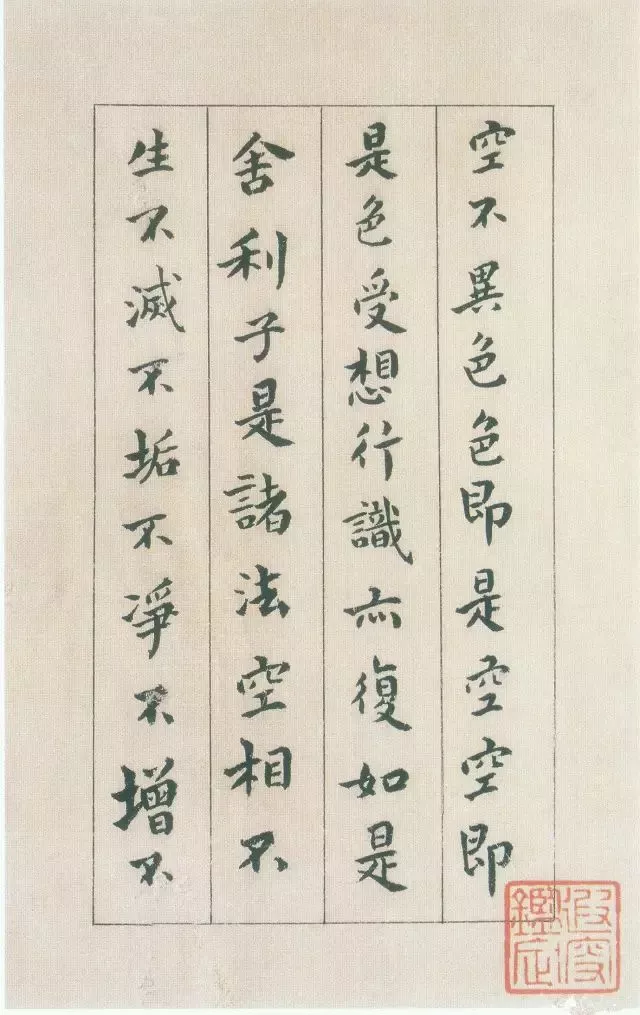 空不異色色即是空空即
是色受想行識亦復如是
舍利子是諸法空相不
生不滅不垢不凈不增不